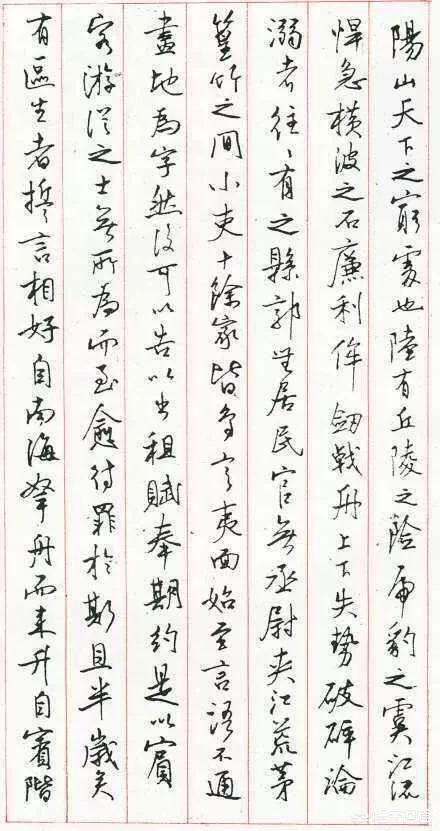 陽山天下之窮處也陸有丘陵之險虎豹之虞江流
悍急橫波之石廉利侔劍戟舟上下失勢破碎淪
溺者往〻有之縣郭無居民官無丞尉夾江荒茅
篁竹之間小吏十餘家皆鳥言夷面始至言語不通
畫地為字然後可以告以出租賦奉期約是以賓
客游從之士無所為而至愈待罪於斯且半歲矣
有區生者誓言相好自南海拏舟而來升自賓階